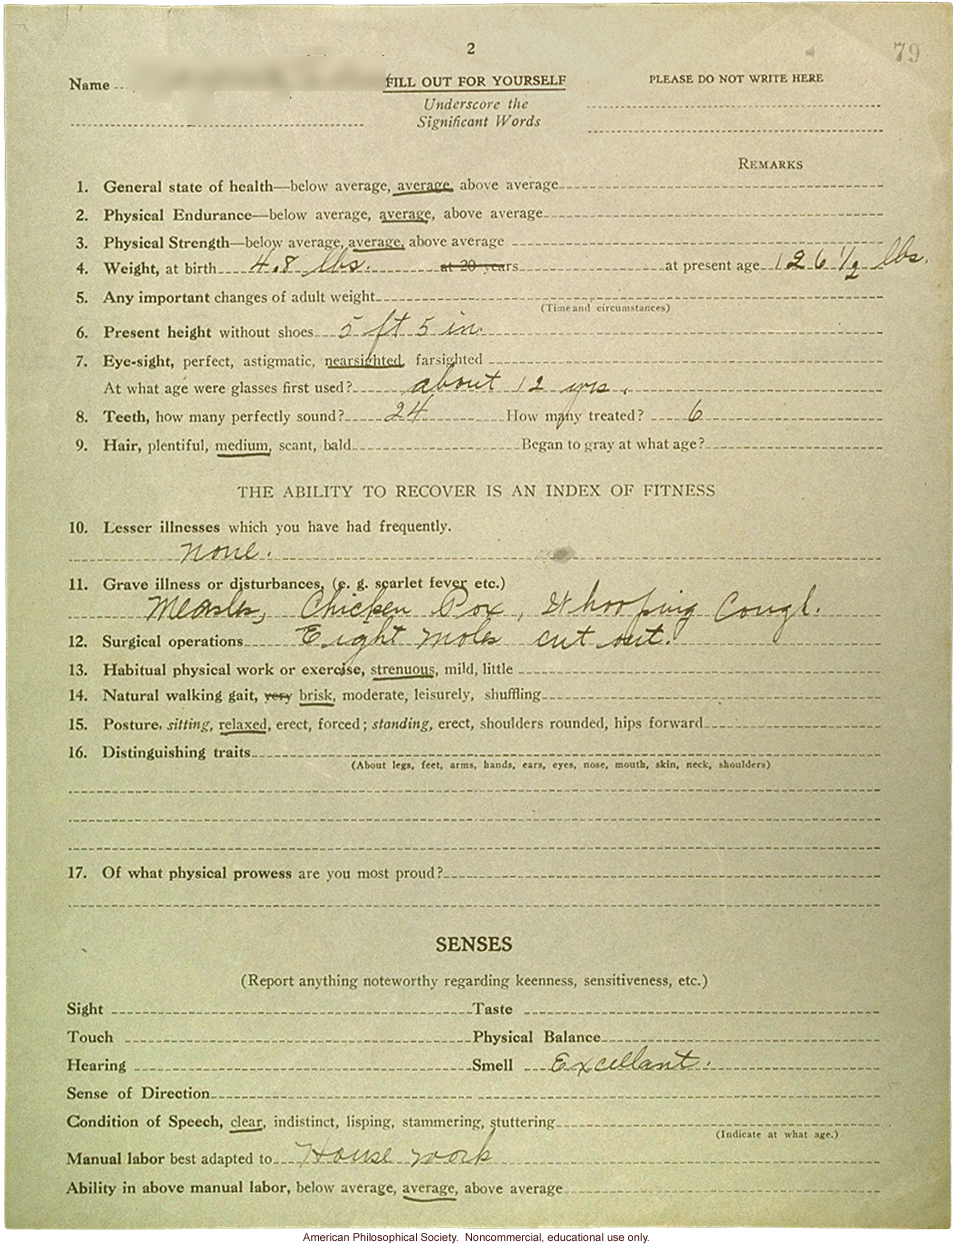 2
79
Name
FILL OUT FOR YOURSELF
PLEASE DO NOT WRITE HERE
Underscore the
Significant Words
REMARKS
1. General state of health—below average, average, above average
2. Physical Endurance—below average, average, above average
3. Physical Strength—below average, average, above average
4. Weight, at birth 4.8 lbs. at 20 years at present age 126 1/2 lbs.
5. Any important changes of adult weight
(Time and circumstances)
6. Present height without shoes 5 ft 5 in.
7. Eye-sight, perfect, astigmatic, nearsighted, farsighted
At what age were glasses first used? about 12 yrs.
8. Teeth, how many perfectly sound? 24 How many treated? 6
9. Hair, plentiful, medium, scant, bald Began to gray at what age?
THE ABILITY TO RECOVER IS AN INDEX OF FITNESS
10. Lesser illnesses which you have had frequently.
none.
11. Grave illness or disturbances, (e. g. scarlet fever etc.)
Measles, Chicken Pox, Whooping Cough.
12. Surgical operations Eight moles cut out.
13. Habitual physical work or exercise, strenuous, mild, little
14. Natural walking gait, very brisk, moderate, leisurely, shuffling
15. Posture, sitting, relaxed, erect, forced; standing, erect, shoulders rounded, hips forward
16. Distinguishing traits
(About legs, feet, arms, hands, ears, eyes, nose, mouth, skin, neck, shoulders)
17. Of what physical prowess are you most proud?
SENSES
(Report anything noteworthy regarding keenness, sensitiveness, etc.)
Sight Taste
Touch Physical Balance
Hearing Smell Excellant.
Sense of Direction
Condition of Speech, clear, indistinct, lisping, stammering, stuttering
(Indicate at what age.)
Manual labor best adapted to House work
Ability in above manual labor, below average, average, above average
American Philosophical Society. Noncommercial, educational use only.